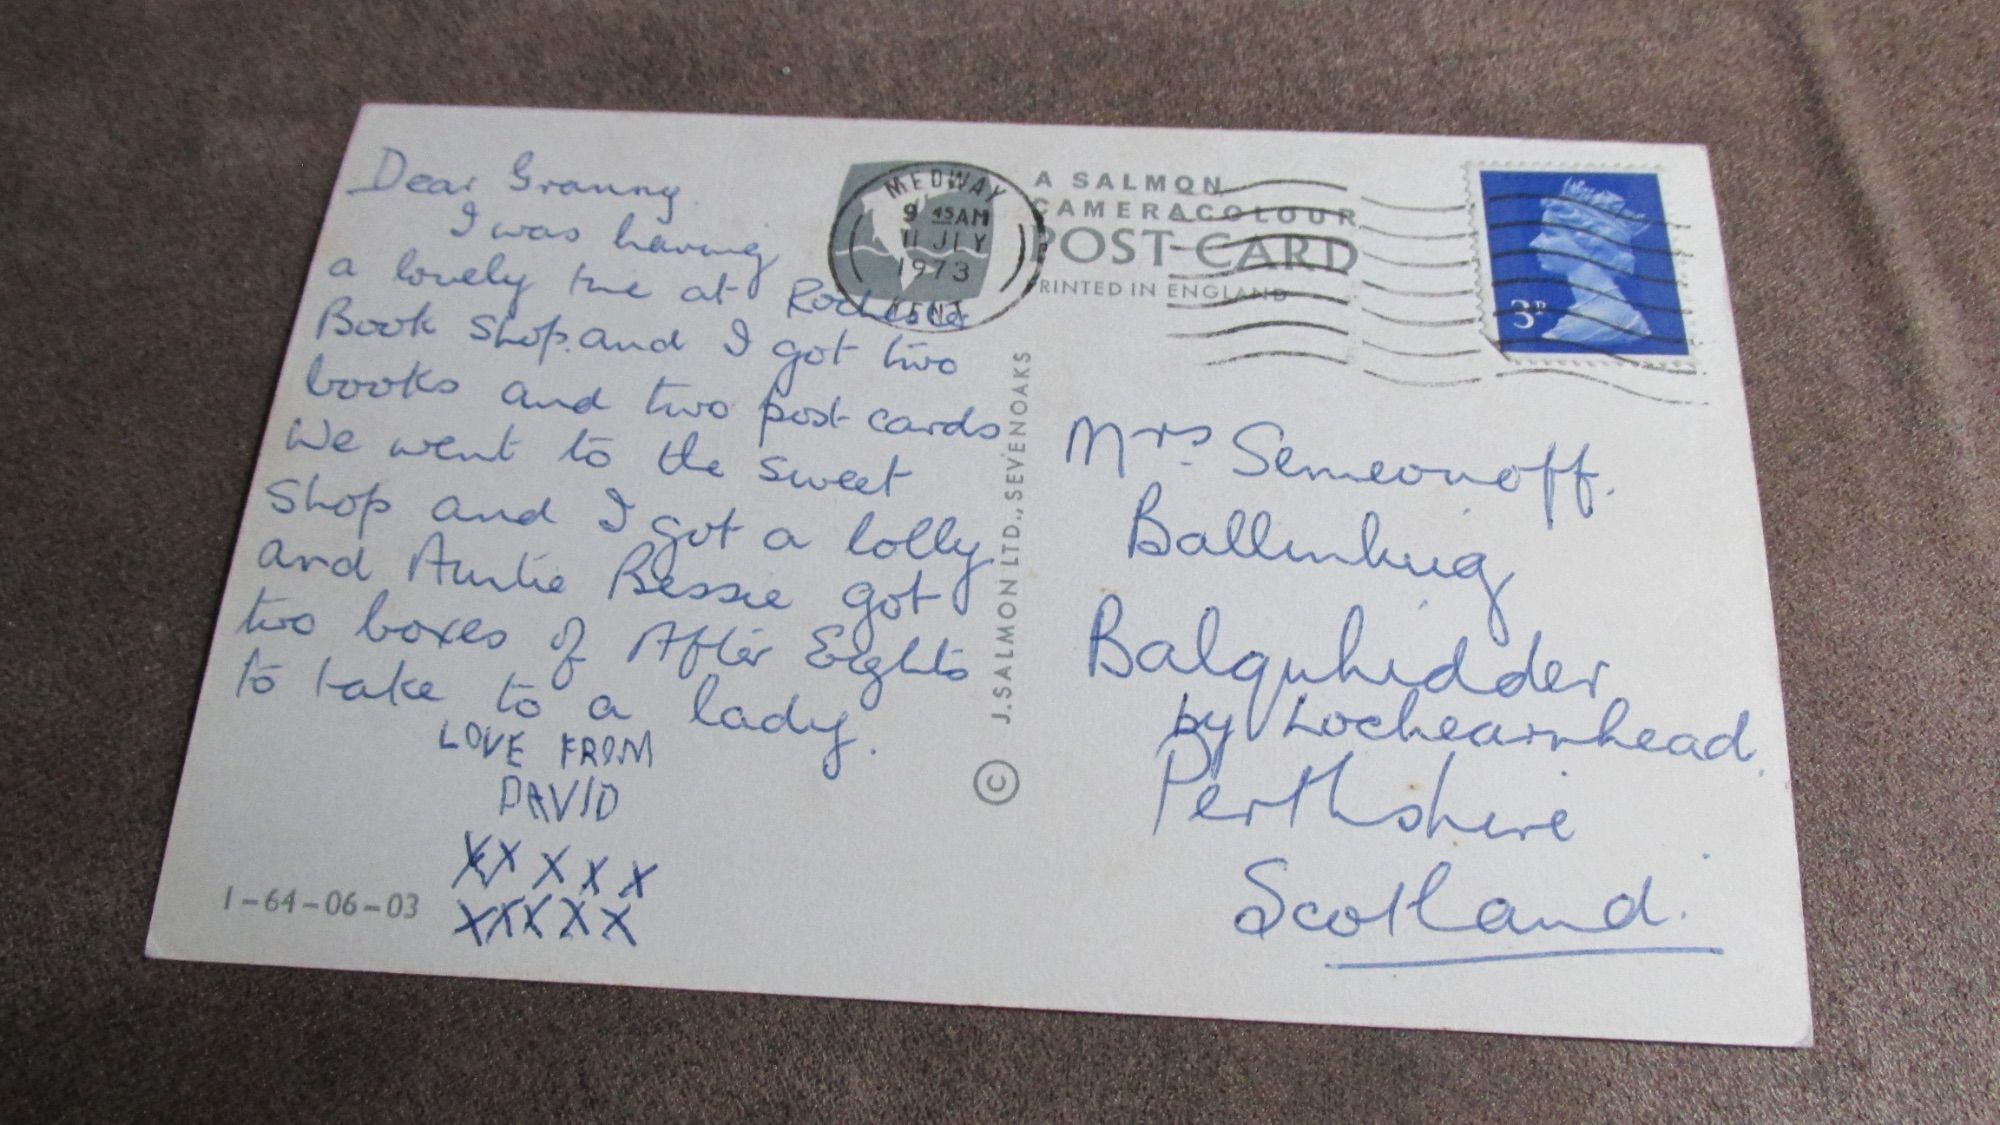 Dear Granny.
I was having
a lovely time at Rochester
Book Shop. and I got two
books and two post cards
We went to the sweet
Shop and I got a lolly
and Auntie Bessie got
two boxes of After Eights
to take to a lady.
LOVE FROM
DAVID
XXXXX
XXXXX
1-64-06-03
MEDWAY
9 45AM
11 JLY
1973
KENT
A SALMON
CAMERACOLOUR
POST CARD
PRINTED IN ENGLAND
© J. SALMON LTD., SEVENOAKS
3P
Mrs Semeonoff.
Balquhidder
by Lochearnhead.
Perthshire
Scotland.